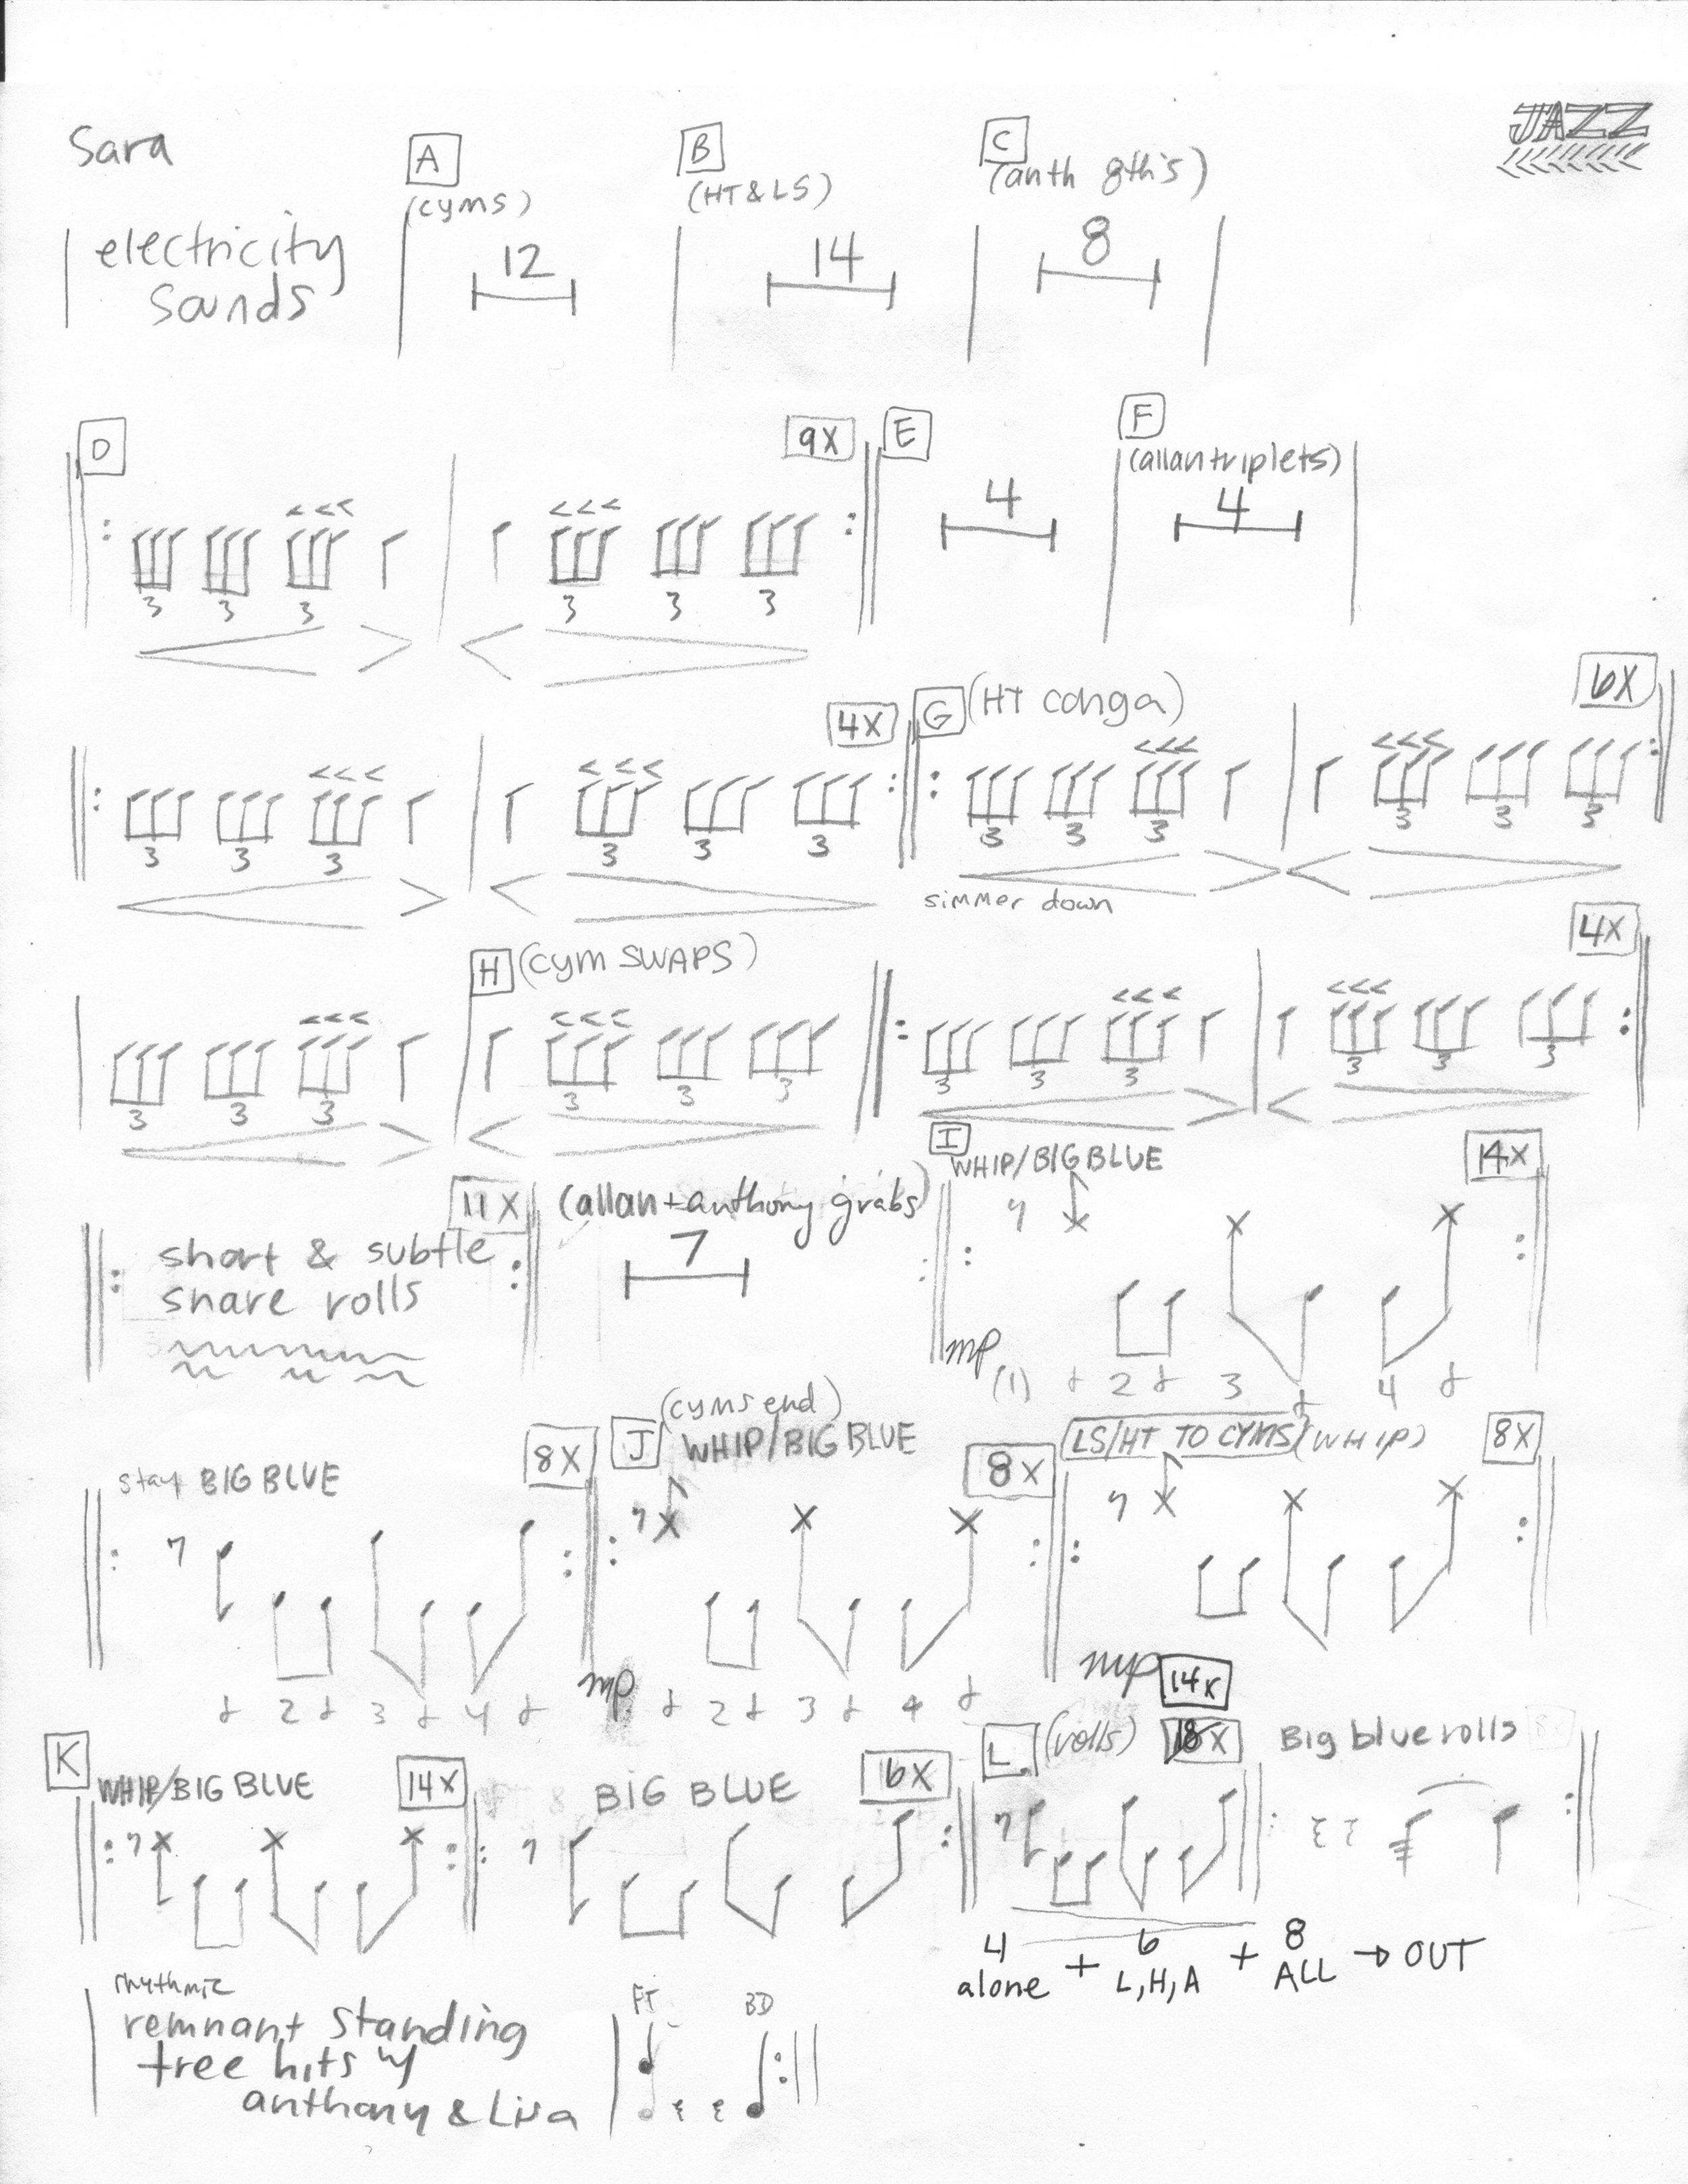 Sara
JAZZ
A
(cyms)
B
(HT & LS)
C
(anth 8th's)
electricity
sounds
12
14
8
D
9X
E
4
F
(allan triplets)
4
3 3 3 3 3 3
4X
G (HT conga)
6X
3 3 3 3 3 3
3 3 3 3 3 3
simmer down
H (cym SWAPS)
4X
3 3 3 3 3 3
3 3 3 3 3 3
11X
short & subtle
snare rolls
(allan + anthony grabs)
7
I
WHIP/BIG BLUE
14X
mp
(1) + 2 + 3 + 4 +
stay BIG BLUE
8X
+ 2 + 3 + 4 +
(cyms end)
J WHIP/BIG BLUE
8X
mp
+ 2 + 3 + 4 +
LS/HT TO CYMS (WHIP)
8X
mp
K
WHIP/BIG BLUE
14X
BIG BLUE
6X
14X
L (rolls) 18X
Big blue rolls
4 6 8
alone + L,H,A + ALL → OUT
rhythmic
remnant standing
tree hits w/
anthony & Lisa
FT BD